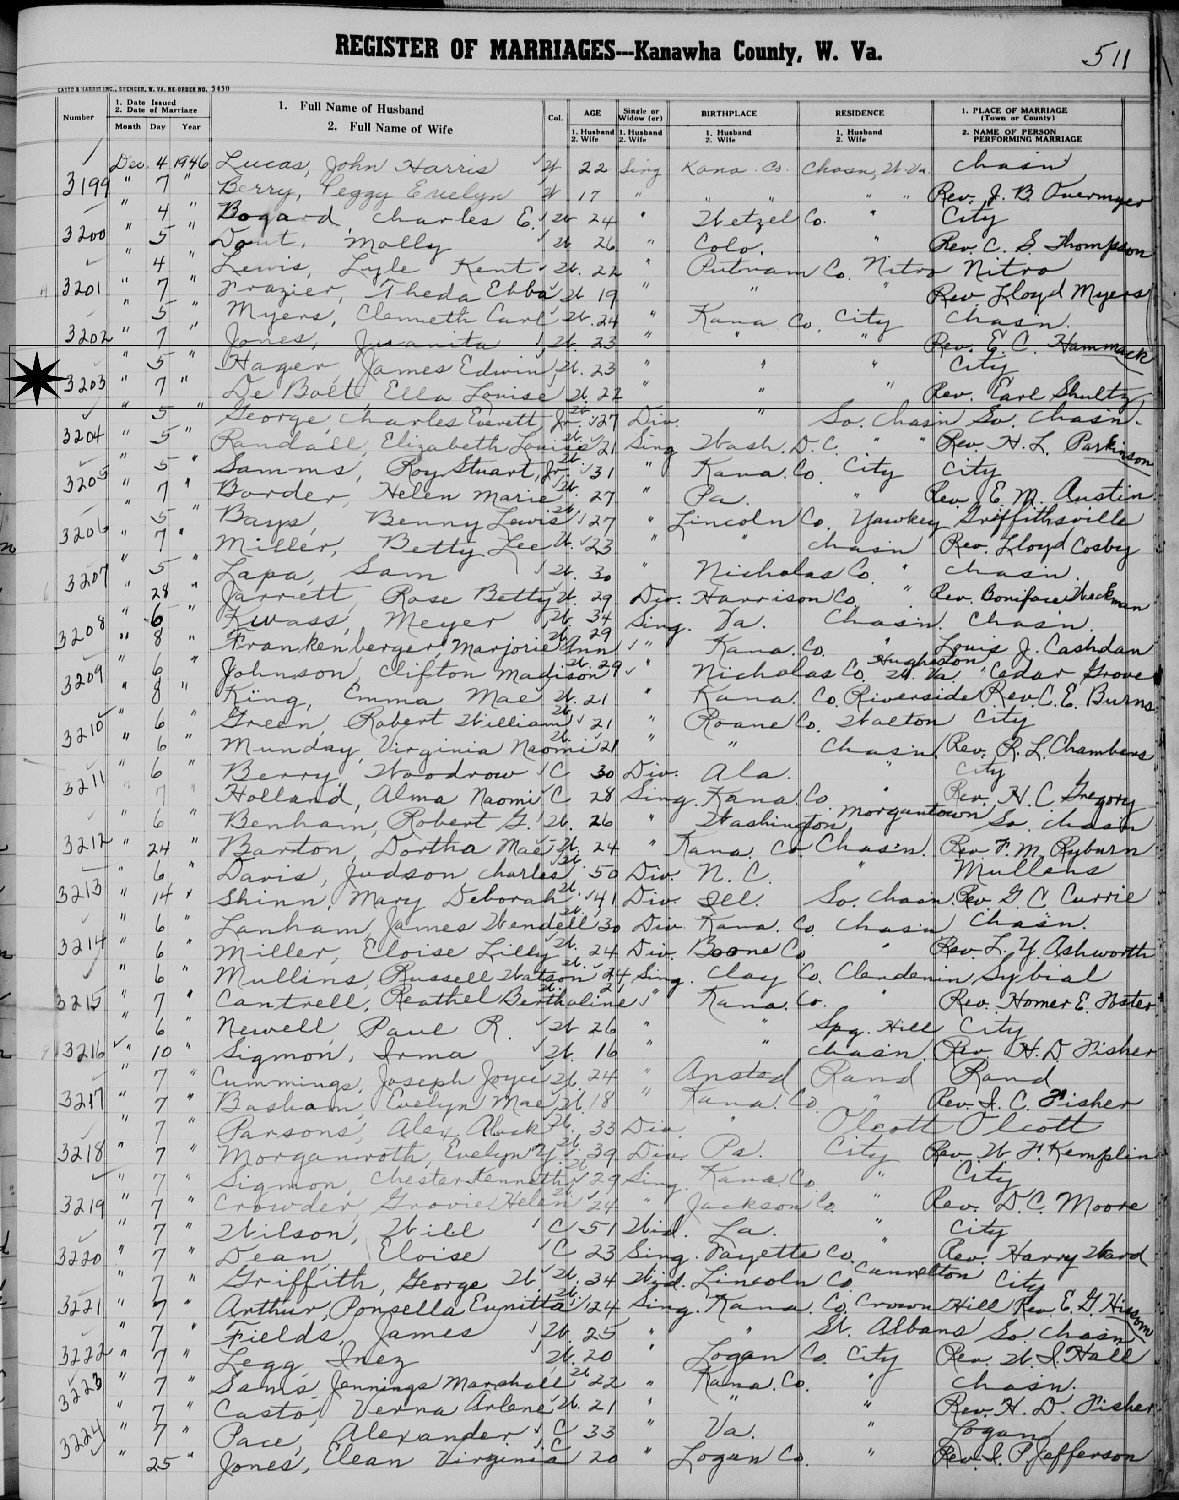 REGISTER OF MARRIAGES--Kanawha County, W. Va. 511
CASTO & HARRIS INC., SPENCER, W. VA. RE-ORDER NO. 5450
Number 1. Date Issued 2. Date of Marriage Month Day Year 1. Full Name of Husband 2. Full Name of Wife Col. AGE 1. Husband 2. Wife Single or Widow (er) 1. Husband 2. Wife BIRTHPLACE 1. Husband 2. Wife RESIDENCE 1. Husband 2. Wife 1. PLACE OF MARRIAGE (Town or County) 2. NAME OF PERSON PERFORMING MARRIAGE
Dec. 4 1946 Lucas, John Harris W 22 Sing Kana. Co. Chasn, W. Va. Chasn
3199 " 7 " Berry, Peggy Evelyn W 17 " " " " Rev. J. B. Overmyer
" 4 " Bogard, Charles E. W 24 " Wetzel Co. " City
3200 " 5 " Dout, Molly W 26 " Colo. " Rev. C. S. Thompson
" 4 " Lewis, Lyle Kent W. 22 " Putnam Co. Nitro Nitro
3201 " 7 " Frazier, Theda Ebba W 19 " " " Rev. Lloyd Myers
" 5 " Myers, Clemeth Carl W. 24 " Kana Co. City Chasn.
3202 " 7 " Jones, Juanita W. 23 " " " Rev. E. C. Hammack
" 5 " Hager, James Edwin W. 23 " " " City
3203 " 7 " De Bolt, Ella Louise W. 22 " " " Rev. Earl Shultz
" 5 " George, Charles Everett, Jr. W. 27 Div. " So. Chasn So. Chasn.
3204 " 5 " Randall, Elizabeth Louise W. 21 Sing Wash. D. C. " " Rev. H. L. Parkinson
" 5 " Samms, Roy Stuart, Jr. W. 31 " Kana. Co. City City
3205 " 7 " Border, Helen Marie W. 27 " Pa. " Rev. E. M. Austin
" 5 " Bays, Benny Lewis W. 27 " Lincoln Co. Yawkey Griffithsville
3206 " 7 " Miller, Betty Lee W. 23 " " Chasn Rev. Lloyd Cosby
" 5 " Lapa, Sam W. 30 " Nicholas Co. " Chasn.
3207 " 28 " Jarrett, Rose Betty W. 29 Div. Harrison Co. " Rev. Boniface Weckman
" 6 " Kwass, Meyer W. 34 Sing. Va. Chasn. Chasn.
3208 " 8 " Frankenberger, Marjorie Ann W. 29 " Kana. Co. " Louis J. Cashdan
" 6 " Johnson, Clifton Madison W. 29 " Nicholas Co. Hugheston W. Va. Cedar Grove
3209 " 8 " King, Emma Mae W. 21 " Kana. Co. Riverside Rev. C. E. Burns
" 6 " Green, Robert William W. 21 " Roane Co. Walton City
3210 " 6 " Munday, Virginia Naomi W. 21 " " Chasn. Rev. R. L. Chambers
" 6 " Berry, Woodrow C 30 Div. Ala. " City
3211 " 7 " Holland, Alma Naomi C 28 Sing. Kana. Co. " Rev. H. C. Gregory
" 6 " Benham, Robert G. W. 26 " Washington, Morgantown So. Chasn
3212 " 24 " Barton, Dortha Mae W. 24 " Kana. Co. Chasn. Rev. F. M. Ryburn
" 6 " Davis, Judson Charles W. 50 Div. N. C. " Mullens
3213 " 14 " Shinn, Mary Deborah W. 41 Div. Ill. So. Chasn. Rev. G. C. Currie
" 6 " Lanham, James Wendell W. 30 Div. Kana. Co. Chasn Chasn.
3214 " 6 " Miller, Eloise Lilly W. 24 Div. Boone Co " Rev. L. Y. Ashworth
" 6 " Mullins, Russell Watson W. 24 Sing. Clay Co. Clendenin Sybial
3215 " 7 " Cantrell, Reathel Berthaline W. 21 " Kana. Co. " Rev. Homer E. Foster
" 6 " Newell, Paul R. W 26 " " Spg. Hill City
3216 " 10 " Sigmon, Irma W. 16 " " Chasn. Rev. H. D. Fisher
" 7 " Cummings, Joseph Joyce W. 24 " Ansted Rand Rand
3217 " 7 " Basham, Evelyn Mae W. 18 " Kana. Co. " Rev. I. C. Fisher
" 7 " Parsons, Alex Alvah W. 33 Div. " Olcott Olcott
3218 " 7 " Morganroth, Evelyn Y. W. 39 Div. Pa. City Rev. W. F. Kemplin
" 7 " Sigmon, Chester Kenneth W. 29 Sing. Kana. Co " City
3219 " 7 " Crowder, Grovie Helen W. 24 " Jackson Co. " Rev. D. C. Moore
" 7 " Wilson, Will C 51 Wid. La. " City
3220 " 7 " Dean, Eloise C 23 Sing. Fayette Co. " Rev. Harry Ward
" 7 " Griffith, George W W. 34 Wid. Lincoln Co. Cannelton City
3221 " 7 " Arthur, Ponsella Eunitta W. 24 Sing. Kana. Co. Crown Hill Rev. E. G. Hissom
" 7 " Fields, James W. 25 " " St. Albans So. Chasn
3222 " 7 " Legg, Inez W. 20 " Logan Co. City Rev. W. I. Hall
3223 " 7 " Sams, Jennings Marshall W. 22 " Kana. Co. " Chasn.
" 7 " Casto, Verna Arlene W. 21 " " " Rev. H. D. Fisher
3224 " 7 " Pace, Alexander C 33 " Va. " Logan
" 25 " Jones, Elean Virginia C 20 " Logan Co. " Rev. I. P. Jefferson